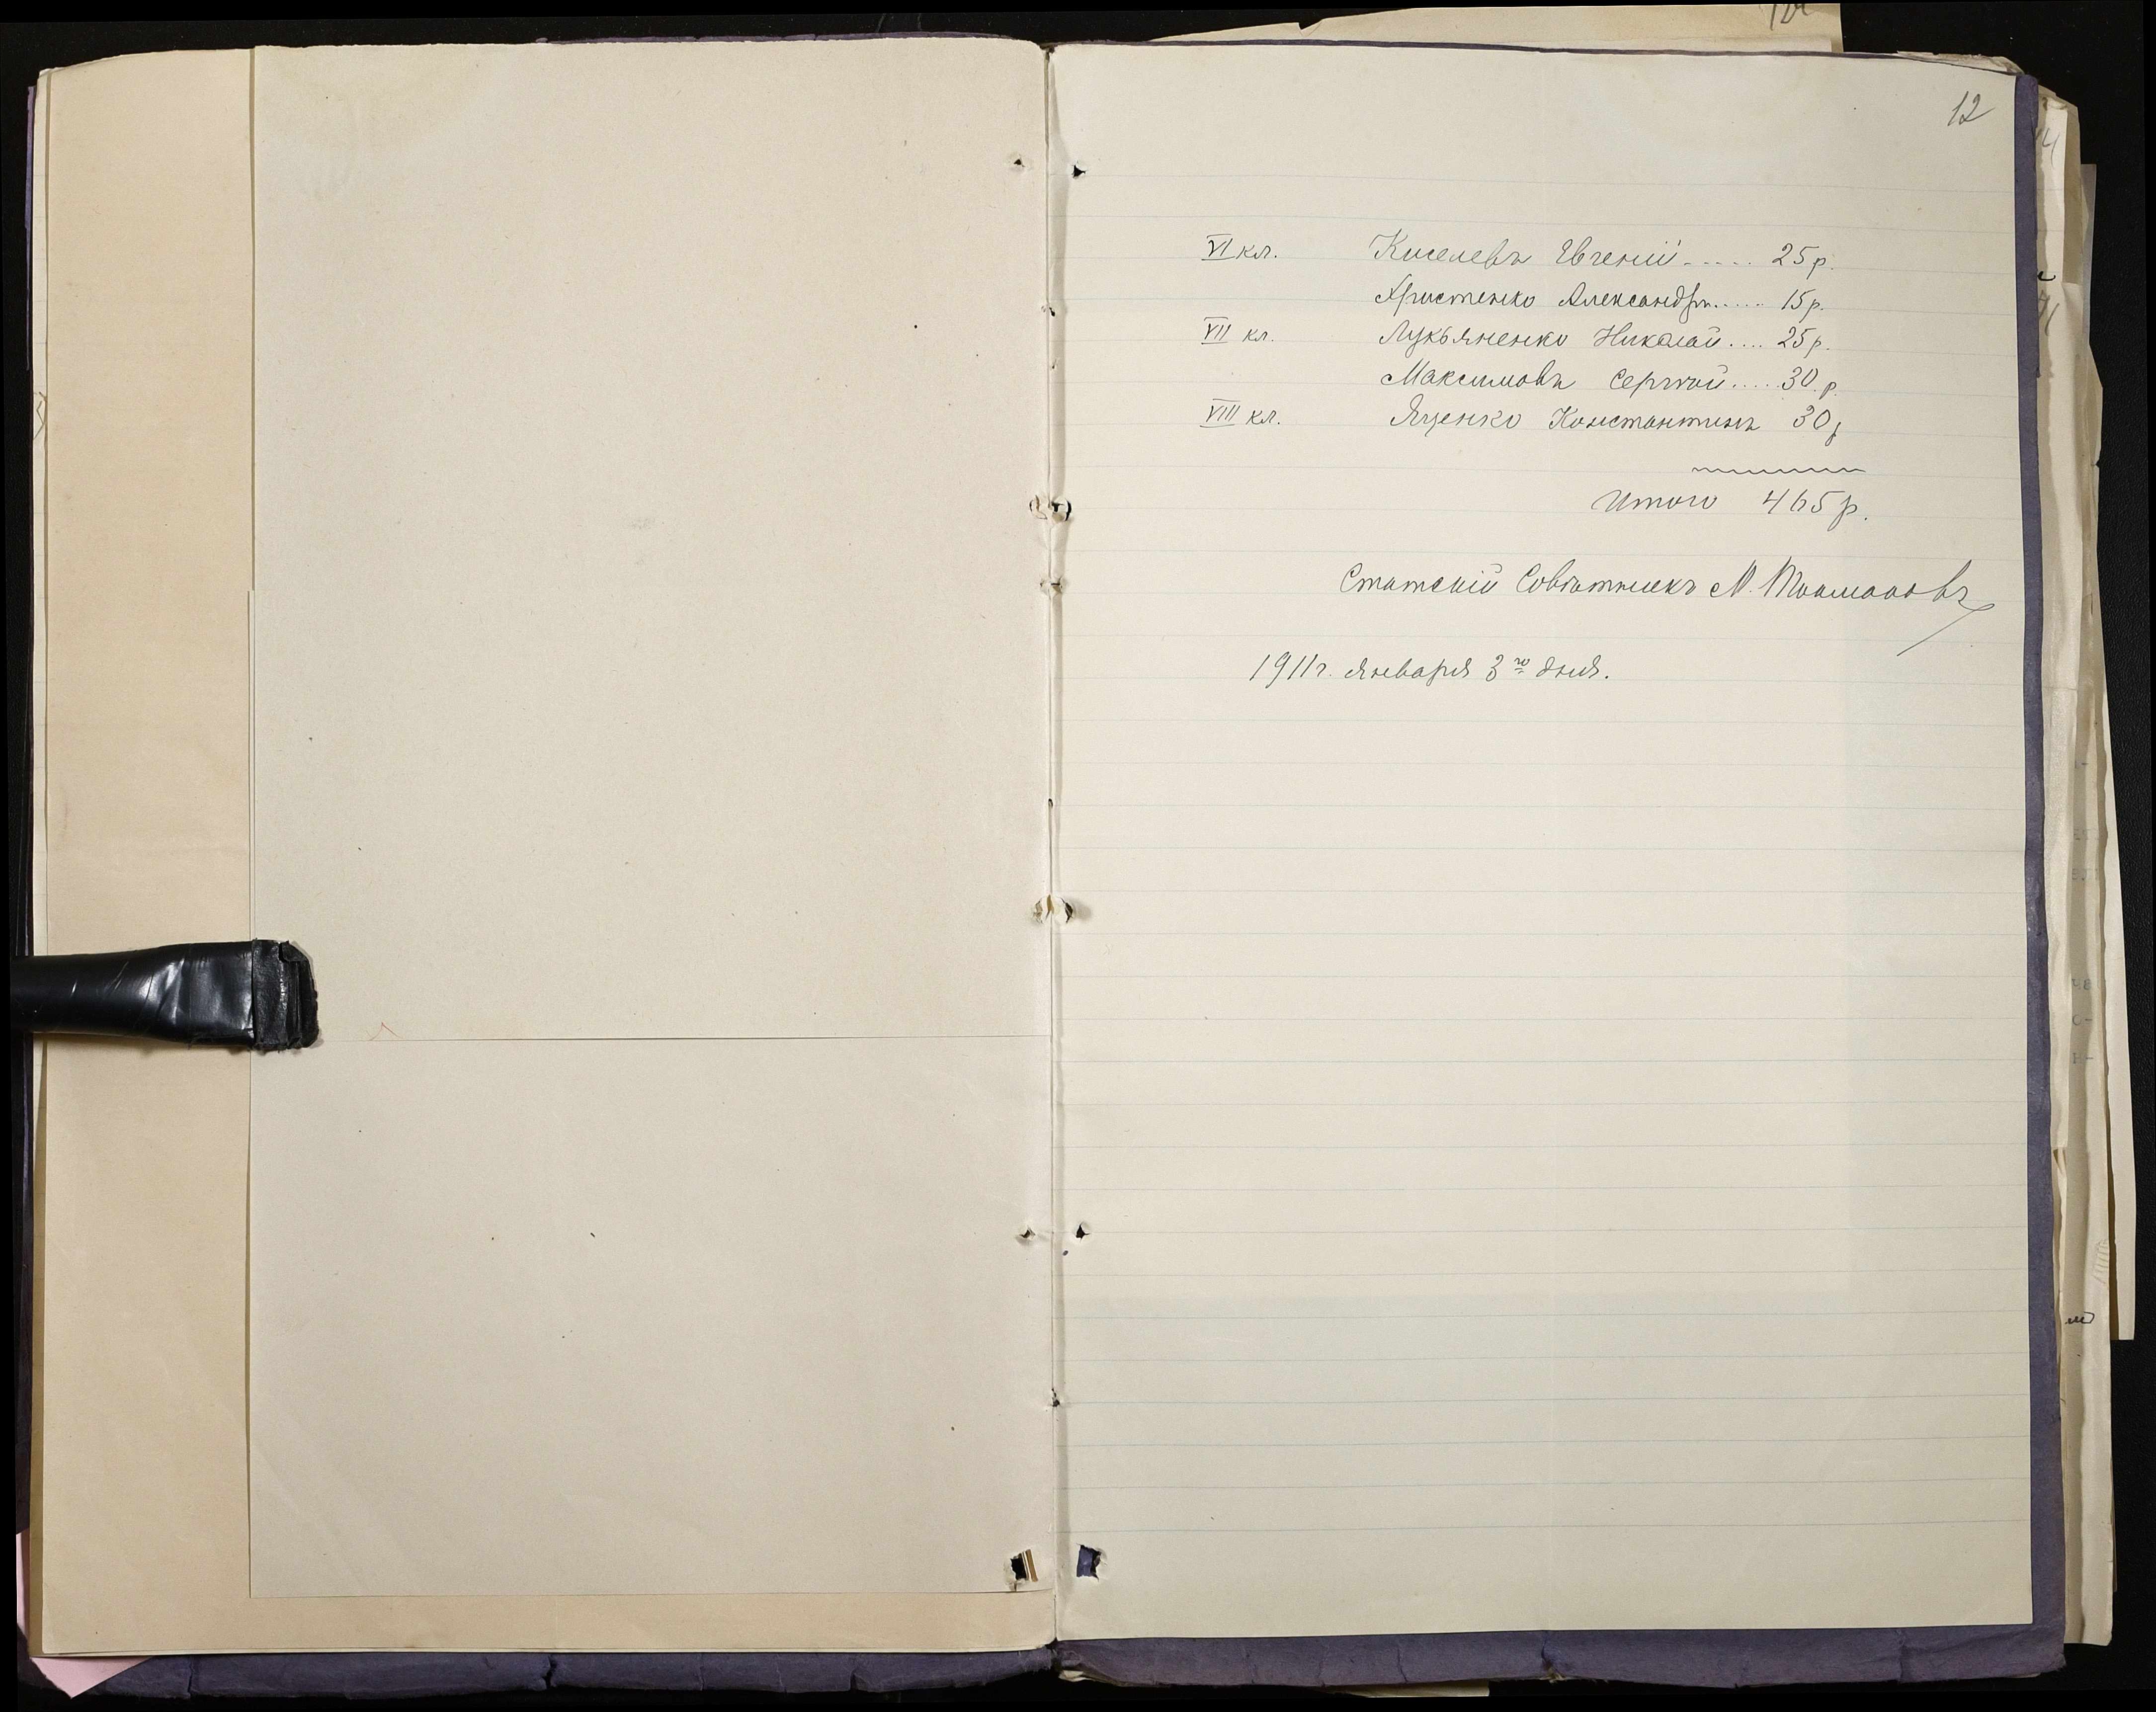 12
VI кл. Киселевъ Евгеній ..... 25 р.
Христенко Александръ ..... 15 р.
VII кл. Лукьяненко Николай .... 25 р.
Максимовъ Сергѣй ..... 30 р.
VIII кл. Яценко Константинъ 30 р
Итого 465 р.
Статскій Совѣтникъ М.
1911 г. января 3го дня.